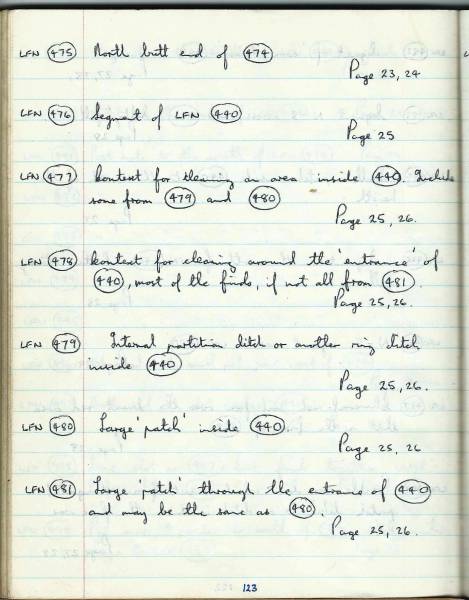 LFN 475 North butt end of 474
Page 23, 24
LFN 476 Segment of LFN 440
Page 25
LFN 477 Context for cleaning an area inside 440. Include
some from 479 and 480
Page 25, 26.
LFN 478 Context for cleaning around the 'entrance' of
440, most of the finds, if not all from 481.
Page 25, 26.
LFN 479 Internal partition ditch or another ring ditch
inside 440
Page 25, 26.
LFN 480 Large 'patch' inside 440
Page 25, 26
LFN 481 Large 'patch' through the entrance of 440
and may be the same as 480.
Page 25, 26.
123